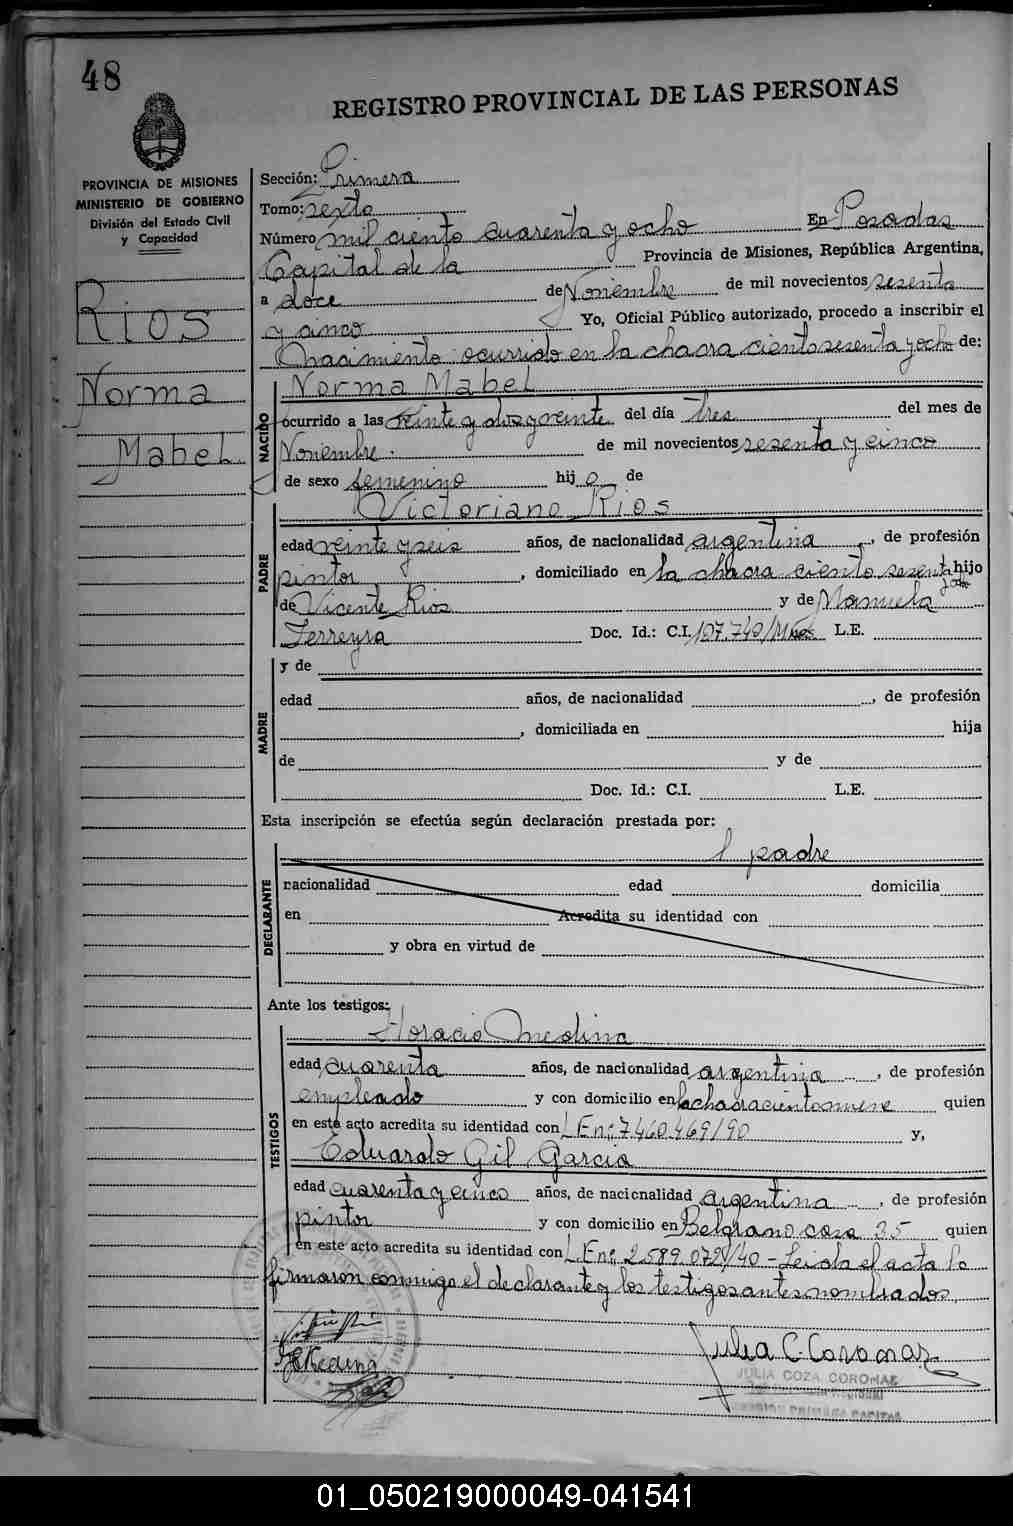 48
REGISTRO PROVINCIAL DE LAS PERSONAS
PROVINCIA DE MISIONES
MINISTERIO DE GOBIERNO
División del Estado Civil
y Capacidad
Rios
Norma
Mabel
Sección: Primera
Tomo: sexto
Número mil ciento cuarenta y ocho En Posadas
Capital de la Provincia de Misiones, República Argentina,
a doce de Noviembre de mil novecientos sesenta
y cinco Yo, Oficial Público autorizado, procedo a inscribir el
Nacimiento ocurrido en la chacra ciento sesenta y ocho de:
Norma Mabel
NACIDO
ocurrido a las veinte y dos y veinte del día tres del mes de
Noviembre. de mil novecientos sesenta y cinco
de sexo femenino hij a de
Victoriano Rios
PADRE
edad veinte y seis años, de nacionalidad argentina, de profesión
pintor, domiciliado en la chacra ciento sesenta y ocho hijo
de Vicente Rios y de Manuela
Ferreyra Doc. Id.: C.I. 107.740/Mnes L.E.
y de
MADRE
edad años, de nacionalidad , de profesión
, domiciliada en hija
de y de
Doc. Id.: C.I. L.E.
Esta inscripción se efectúa según declaración prestada por:
l padre
DECLARANTE
nacionalidad edad domicilia
en Acredita su identidad con
y obra en virtud de
Ante los testigos:
Horacio Medina
TESTIGOS
edad cuarenta años, de nacionalidad argentina, de profesión
empleado y con domicilio en la chacra ciento nueve quien
en este acto acredita su identidad con L En: 7.460.469/90 y,
Eduardo Gil Garcia
edad cuarenta y cinco años, de nacionalidad argentina, de profesión
pintor y con domicilio en Belgrano casa 35 quien
en este acto acredita su identidad con L. En: 2.589.072/40 - Leida el acta la
firmaron conmigo el declarante y los testigos antes nombrados
Julia C. Coronas
JULIA COZA CORONAS
01_050219000049-041541